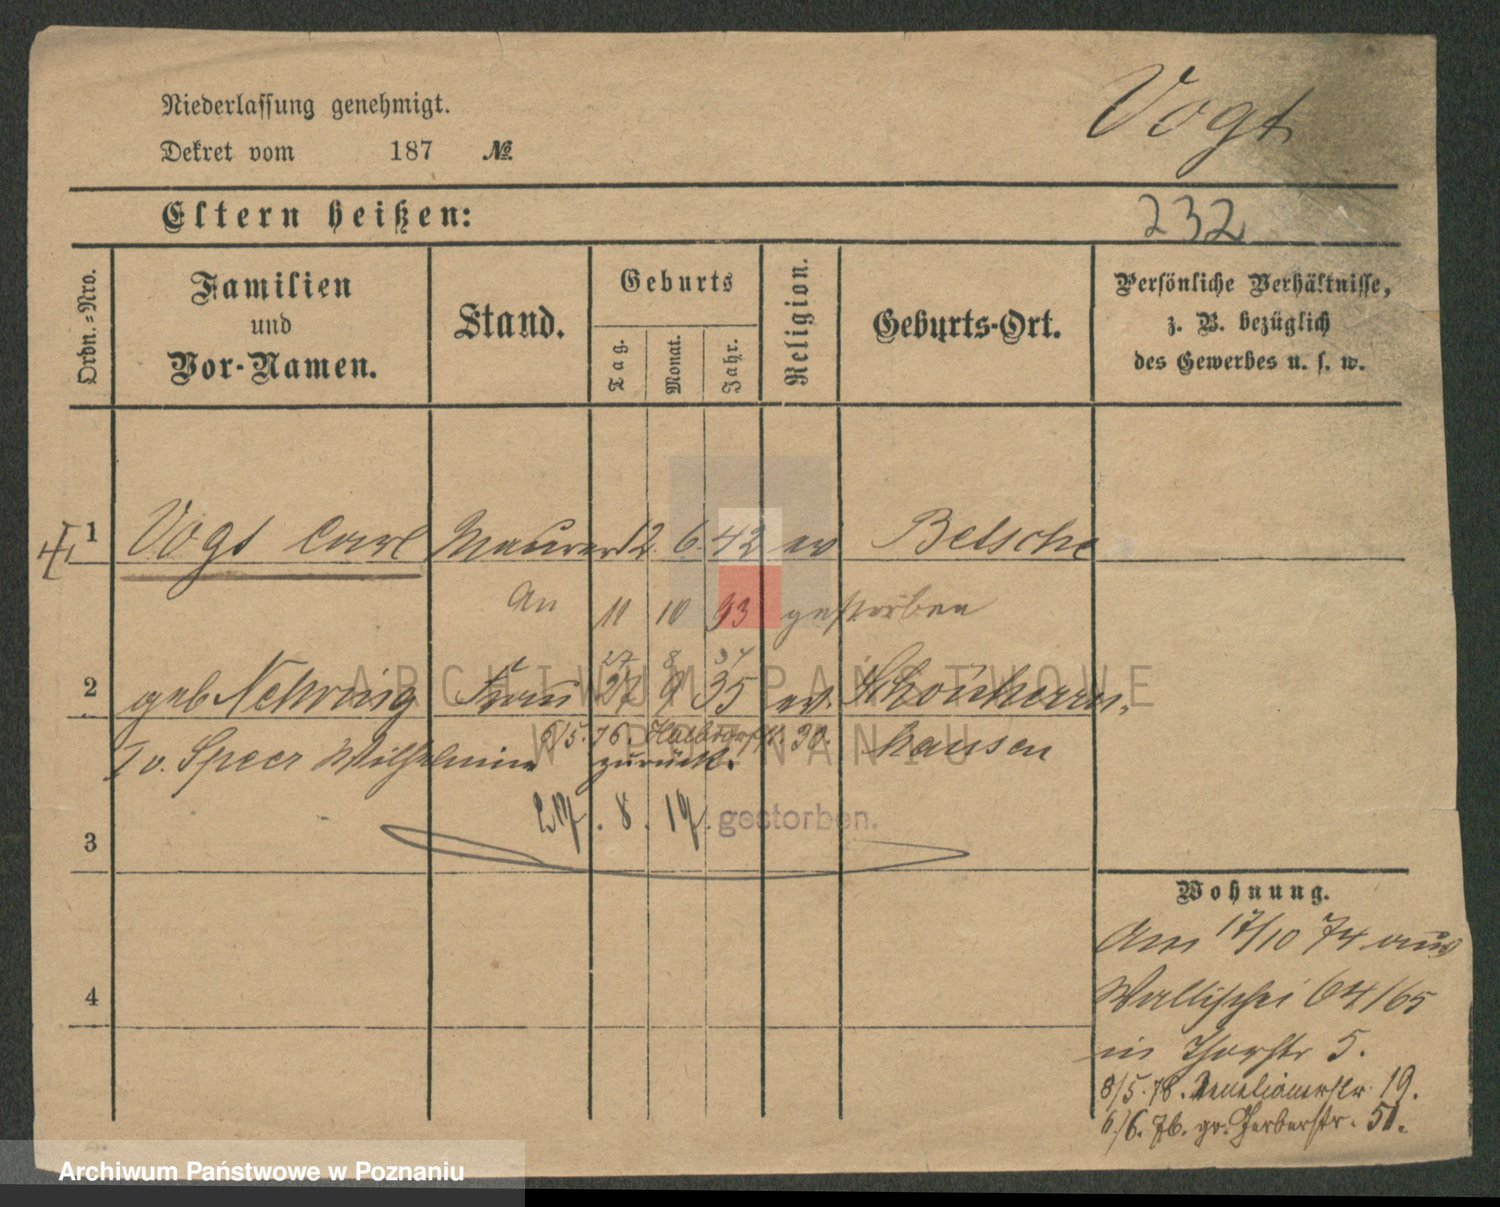 Niederlassung genehmigt.
Dekret vom 187 №
Vogt
Eltern heißen:
232
Ordn.-Nro.
Familien
und
Vor-Namen.
Stand.
Geburts
Tag.
Monat.
Jahr.
Religion.
Geburts-Ort.
Persönliche Verhältnisse,
z. B. bezüglich
des Gewerbes u. s. w.
1 Vogt Carl Maurer 12. 6. 42 ev Betsche
An 11 10 93 gestorben
27 8 34
2 geb Nehring Frau 27 9 35 ev. Schönherrn,
T v. Speer Wilhelmine 6/5. 76. Halbdorfstr. 30. hausen
zurück.
27. 8. 19. gestorben.
3
4
Wohnung.
Am 17/10 74 aus
Wallischei 64/65
in Thorstr 5.
8/5. 78. Venetianerstr. 19.
6/6. 76. gr. Gerberstr. 51.
ARCHIWUM PAŃSTWOWE
W POZNANIU
Archiwum Państwowe w Poznaniu